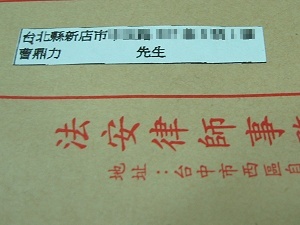 台北縣新店市
曹鼎力 先生
法安律師事
地址：台中市西區自